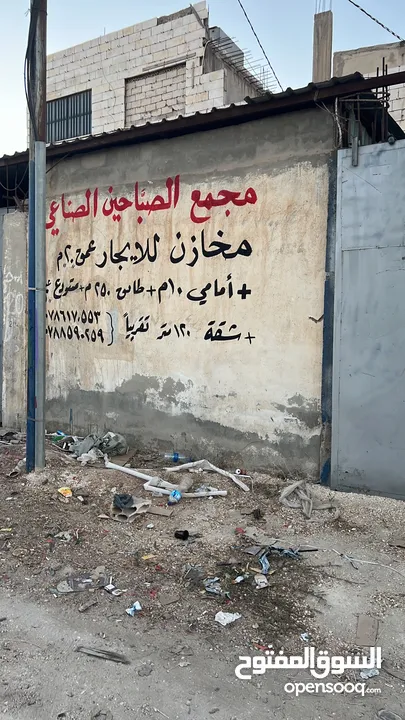 مجمع الصبّاحين الصناعي
مخازن للايجار عمق ٢٠م
+ أمامي ١٠م + طابق ٢٥٠م +
٠٧٨٦١٧.٥٥٣
+ شقة ١٢٠ متر تقريباً {
٠٧٨٨٥٩٠٢٥٩
السوق المفتوح
opensooq.com